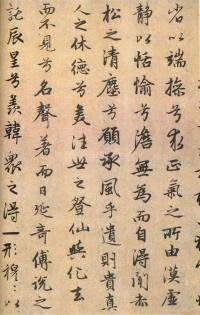 省以端操兮求正氣之所由漠虛
静以恬愉兮澹無為而自得聞赤
松之清塵兮願承風乎遺則貴真
人之休德兮美往世之登仙與化去
而不見兮名聲著而日延奇傅說之
託辰星兮羡韓衆之得一形穆〻以